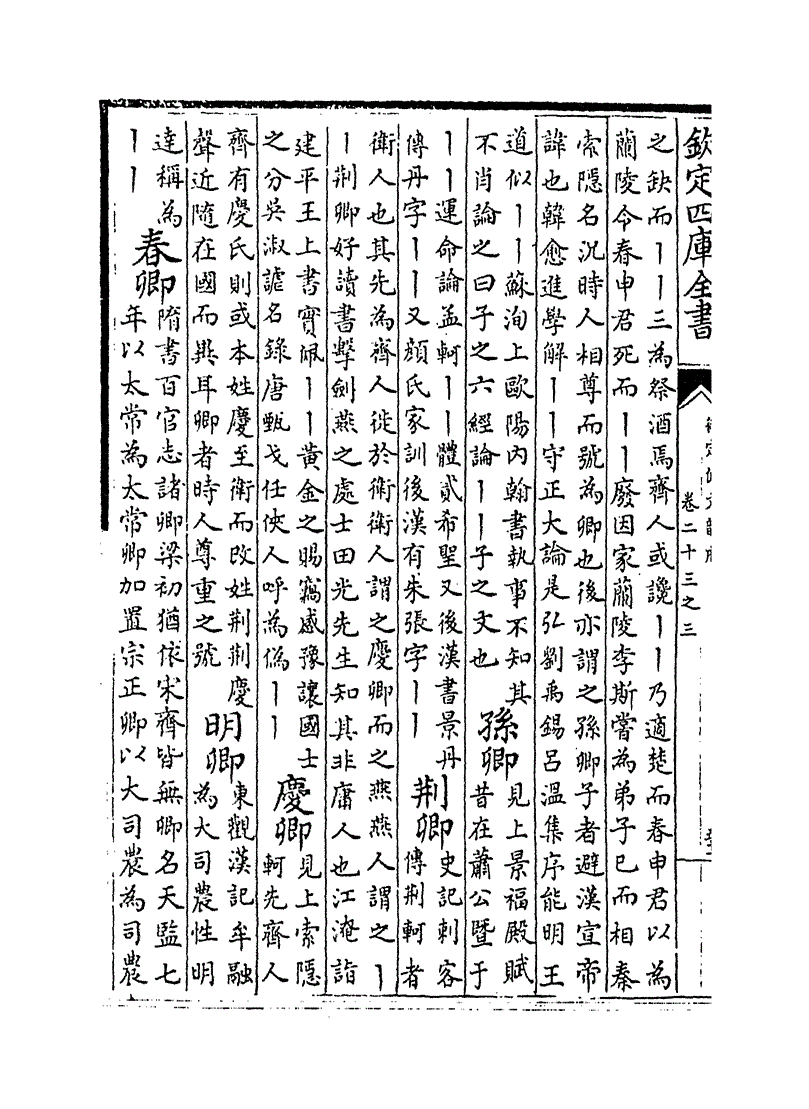 欽定四庫全書
卷二十三之三
之缺而丨丨三為祭酒焉齊人或讒丨丨乃適楚而春申君以為
蘭陵令春申君死而丨丨廢因家蘭陵李斯嘗為弟子已而相秦
索隱名况時人相尊而號為卿也後亦謂之孫卿子者避漢宣帝
諱也韓愈進學解丨丨守正大論是弘劉禹錫呂溫集序能明王
道似丨丨蘇洵上歐陽内翰書執事不知其
不肖論之曰子之六經論丨丨子之文也
孫卿
見上景福殿賦
昔在蕭公暨于
丨丨運命論孟軻丨丨體貳希聖又後漢書景丹
傳丹字丨丨又顔氏家訓後漢有朱張字丨丨
荆卿
史記刺客
傳荆軻者
衛人也其先為齊人徙於衛衛人謂之慶卿而之燕燕人謂之丨
丨荆卿好讀書擊劍燕之處士田光先生知其非庸人也江淹詣
建平王上書實佩丨丨黄金之賜竊感豫讓國士
之分吳淑謔名錄唐甄戈任俠人呼為偽丨丨
慶卿
見上索隱
軻先齊人
齊有慶氏則或本姓慶至衛而改姓荆荆慶
聲近隨在國而異耳卿者時人尊重之號
明卿
東觀漢記牟融
為大司農性明
達稱為
丨丨
春卿
隋書百官志諸卿梁初猶依宋齊皆無卿名天監七
年以太常為太常卿加置宗正卿以大司農為司農